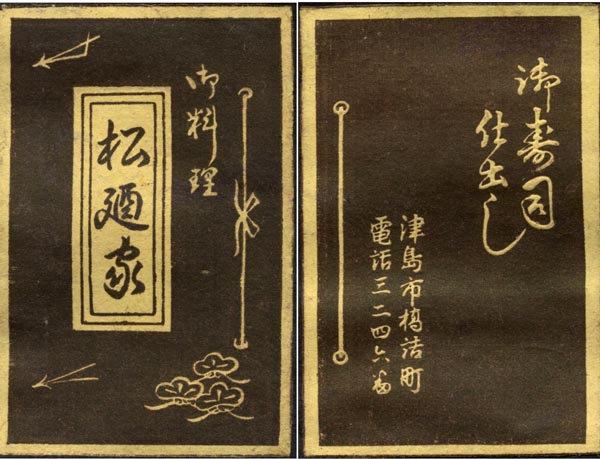 御料理
松廼家
御寿司
仕出し
津島市橋詰町
電話三二四六番